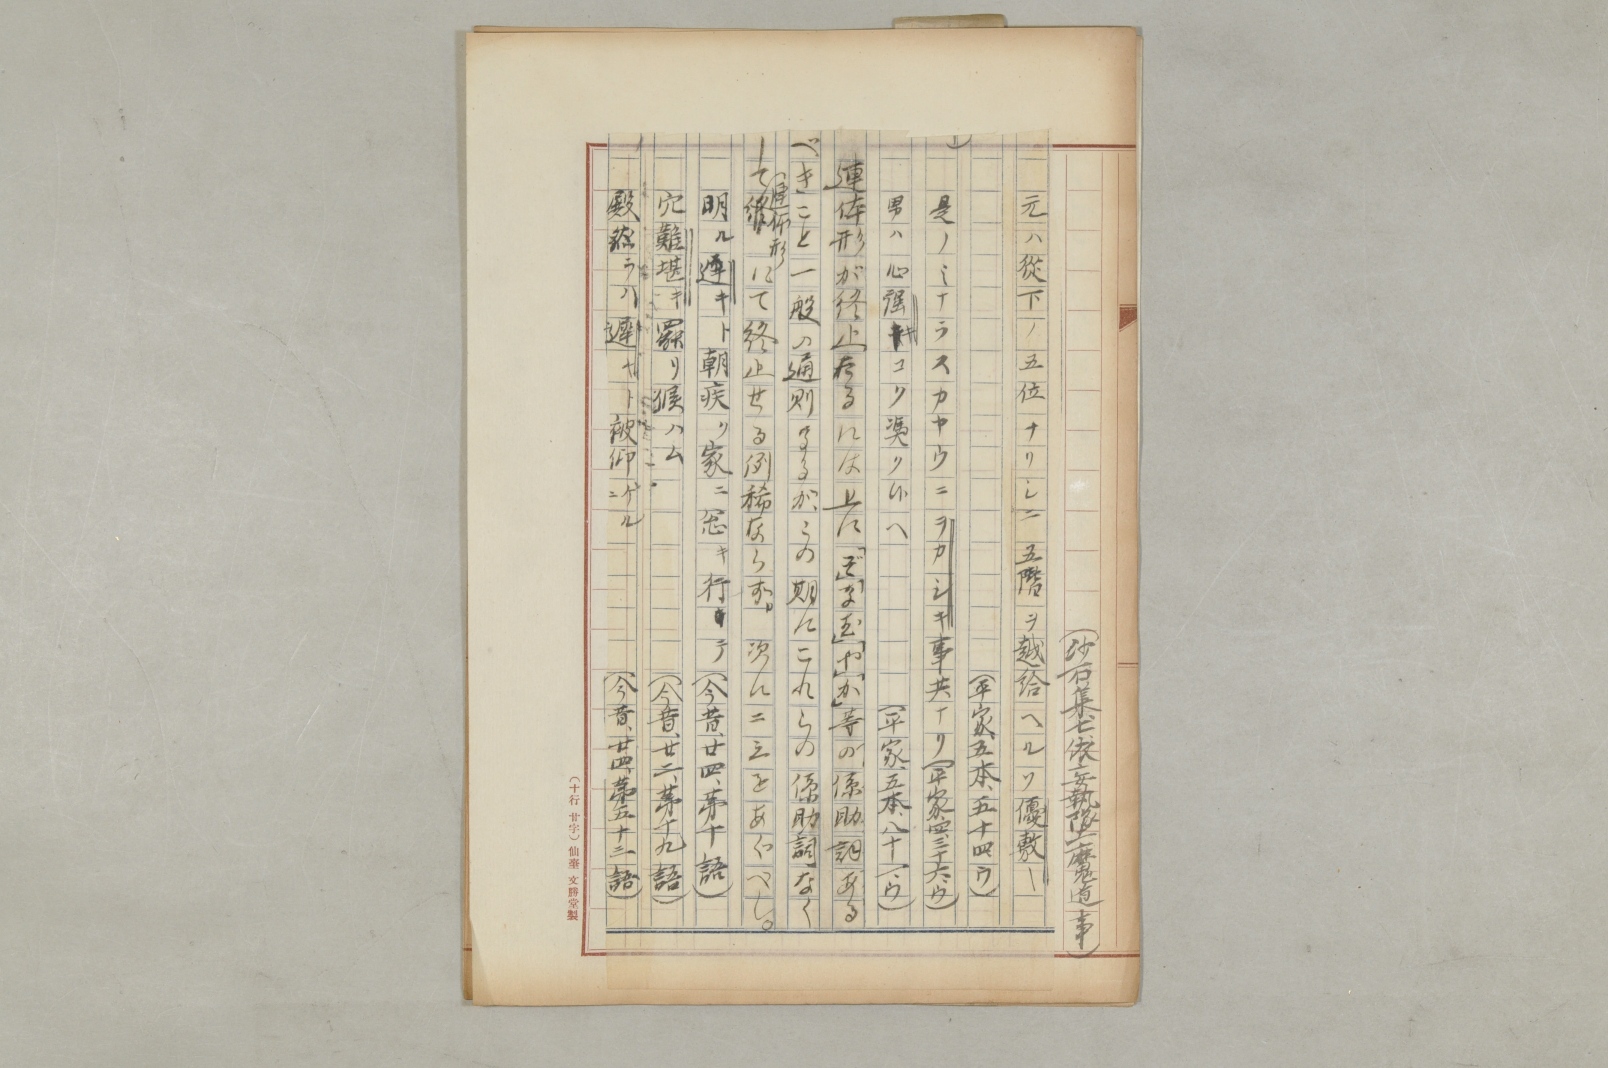 (沙石集七、依妄執墮魔道事)
元ハ從下ノ五位ナリシニ五階ヲ越給ヘルソ優敷
(平家、五本、五十四ウ)
是ノミナラスカヤウニヲカシキ事共アリ(平家、四、三十六、ウ)
男ハ心强キコソ憑クハヘ(平家、五本、八十一、ウ)
連体形が終止なるには上に「ぞ」「なむ」「や」「か」等の係助詞ある
べきこと一般の通則なるが、この期にこれらの係助詞なく
して連体形にて終止せる例稀ならず。次に二三をあぐべし。
明ル遲キト朝疾ク家ニ怱キ行キテ(今昔、廿四、第十語)
穴難堪キ罸リ候ハム(今昔、廿二、第十九語)
殿然ラハ遲キト被仰ニケル(今昔、廿四、第五十三語)
(十行廿字)仙臺文勝堂製